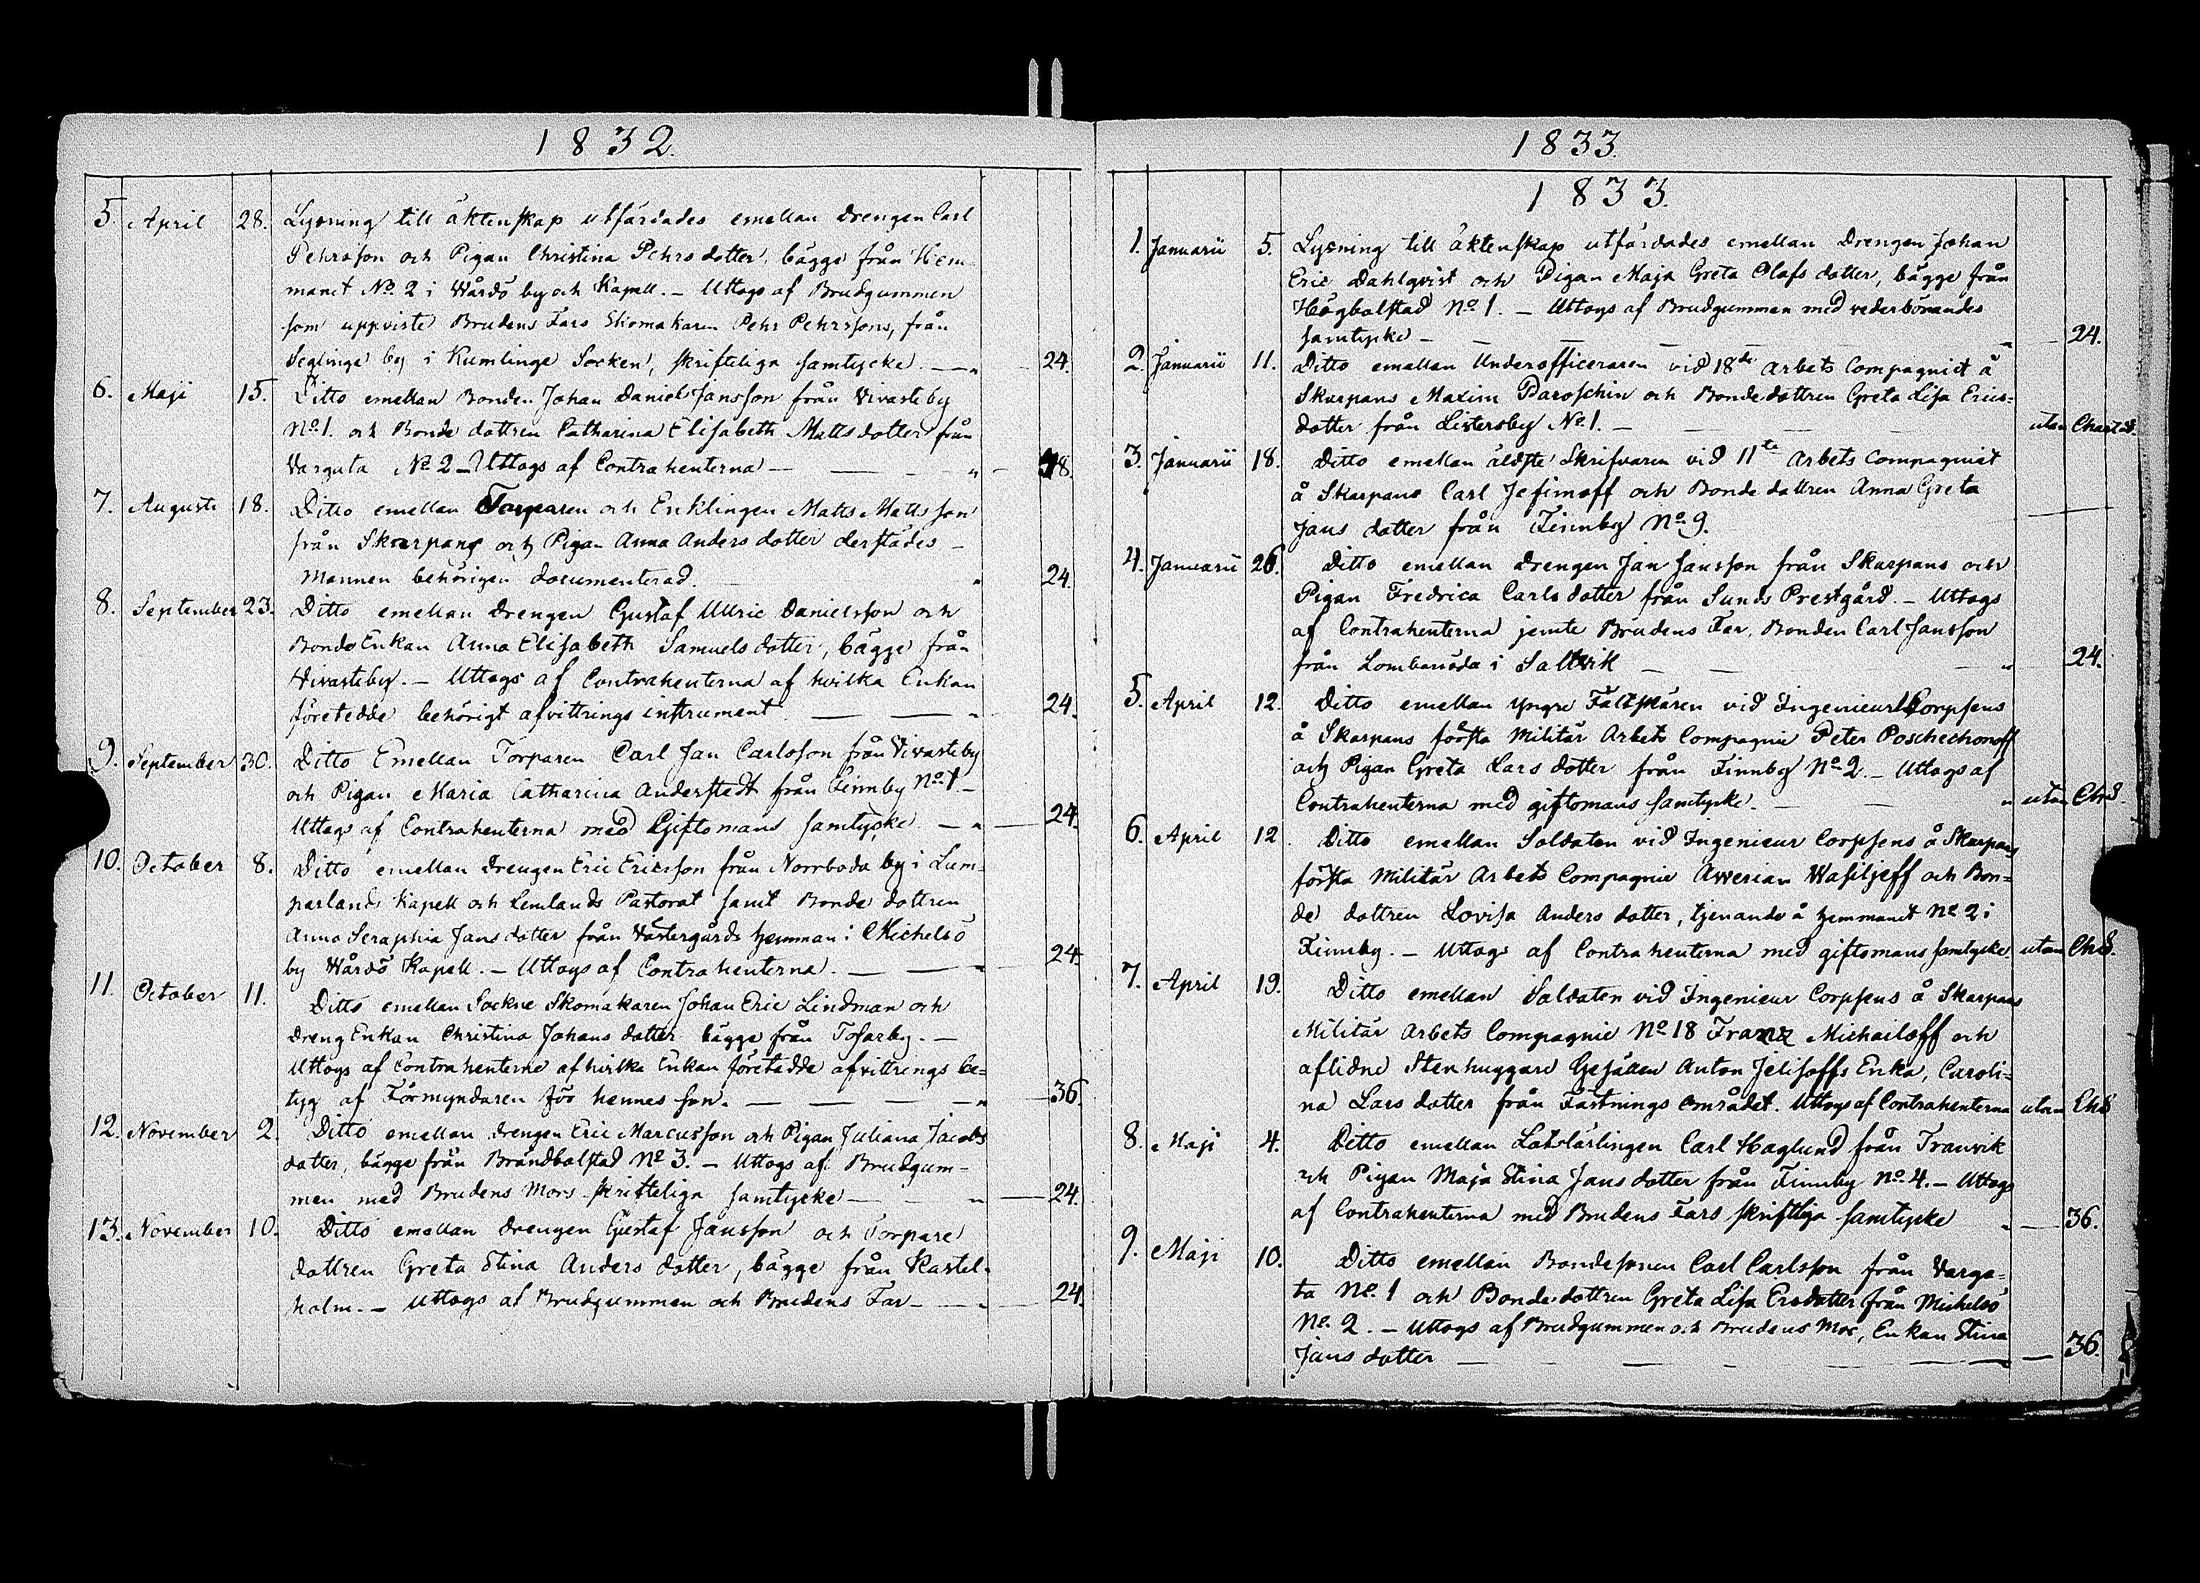 1832.
5. April 28. Lysning till äktenskap utfärdades emellan Drengen Carl
Pehrsson och Pigan Christina Pehrsdotter, bägge från Hem-
manet No. 2 i Wårdö by och Kapell. - Uttogs af Brudgummen
som uppviste Brudens Fars Skomakaren Pehr Pehrssons, från
Seglinge by i Kumlinge Socken, skrifteliga samtycke. — 24.
6. Maji 15. Ditto emellan Bonden Johan Daniel Jansson från Vivasteby
No. 1. och Bonde dottren Catharina Elisabeth Matts dotter från
Vargata No. 2 - Uttogs af Contrahenterna — 48.
7. Augusti 18. Ditto emellan Torparen och Enklingen Matts Mattsson
från Skarpans och Pigan Anna Anders dotter derstädes -
Mannen behörigen documenterad. 24.
8. September 23. Ditto emellan Drengen Gustaf Ullric Danielsson och
Bonde Enkan Anna Elisabeth Samuels dotter, bägge från
Vivasteby. - Uttogs af Contrahenterna af hvilka Enkan
företedde behörigt afvittrings instrument — 24.
9. September 30. Ditto Emellan Torparen Carl Jan Carlsson från Vivasteby
och Pigan Maria Catharina Anderstedt från Finnby No. 1 -
Uttogs af Contrahenterna med Giftomans samtycke — 24.
10. October 8. Ditto emellan Drengen Eric Ericsson från Norrboda by i Lum-
parlands Kapell och Lemlands Pastorat samt Bonde dottren
Anna Seraphia Jans dotter från Västergårds hemman i Michelsö
by Wårdö Kapell. - Uttogs af Contrahenterna. — 24.
11. October 11. Ditto emellan Sockne Skomakaren Johan Eric Lindman och
Dreng Enkan Christina Johans dotter bägge från Tosarby. -
Uttogs af Contrahenterne af hvilka Enkan företedde afvittrings be-
tyg af Förmyndaren för hennes son. — 36.
12. November 2. Ditto emellan Drengen Eric Marcusson och Pigan Juliana Jacobs
dotter, bägge från Brändbolstad No. 3. - Uttogs af Brudgum-
men med Brudens Mors skrifteliga samtycke — 24.
13. November 10. Ditto emellan Drengen Gustaf Jansson och Torpare
dottren Greta Stina Anders dotter, bägge från Kastel-
holm. - Uttogs af Brudgummen och Brudens Far — 24.
1833.
1833.
1. Januarii 5. Lysning till äktenskap utfärdades emellan Drengen Johan
Eric Dahlqvist och Pigan Maja Greta Olafs dotter, bägge från
Högbolstad No. 1. - Uttogs af Brudgummen med vederbörandes
samtycke — 24.
2. Januarii 11. Ditto emellan Underofficeraren vid 18de Arbets Compagniet å
Skarpans Maxim Daroschin och Bondedottren Greta Lisa Erics-
dotter från Listersby No. 1. — utan Chart. S.
3. Januarii 18. Ditto emellan äldste Skrifvaren vid 11te Arbets Compagniet
å Skarpans Carl Jefimoff och Bonde dottren Anna Greta
Jans dotter från Finnby No. 9. —
4. Januarii 26. Ditto emellan Drengen Jan Jansson från Skarpans och
Pigan Fredrica Carls dotter från Sunds Prestgård. - Uttogs
af Contrahenterna jemte Brudens Far, Bonden Carl Jansson
från Lombersöda i Saltvik — 24.
5. April 12. Ditto emellan yngre Fältskären vid Ingenieur Corpsens
å Skarpans första Militär Arbets Compagnie Peter Poschechonoff
och Pigan Greta Lars dotter från Finnby No. 2. - Uttogs af
Contrahenterna med giftomans samtycke. — utan Ch. S.
6. April 12. Ditto emellan Soldaten vid Ingenieur Corpsens å Skarpans
första Militär Arbets Compagnie Awerian Wasiljeff och Bon-
de dottren Lovisa Anders dotter, tjenande å hemmanet No. 2 i
Finnby. - Uttogs af Contrahenterna med giftomans samtycke utan Ch. S.
7. April 19. Ditto emellan Soldaten vid Ingenieur Corpsens å Skarpans
Militär Arbets Compagnie No. 18 Franz Michailoff och
aflidne Stenhuggare Gesällen Anton Jelisoffs Enka, Caroli-
na Lars dotter från Fästnings området. Uttogs af Contrahenterna utan Ch. S
8. Maji 4. Ditto emellan Lotslärlingen Carl Haglund från Tranvik
och Pigan Maja Stina Jans dotter från Finnby No. 4. - Uttogs
af Contrahenterna med Brudens Fars skriftliga samtycke — 36.
9. Maji 10. Ditto emellan Bondesonen Carl Carlsson från Varga-
ta No. 1 och Bonde dottren Greta Lisa Ersdotter från Michelsö
No. 2. - Uttogs af Brudgummen och Brudens Mor, Enkan Stina
Jans dotter — 36.